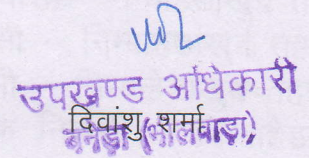 उपखण्ड अधिकारी
दिवांशु शर्मा
बनेड़ा (भीलवाड़ा)